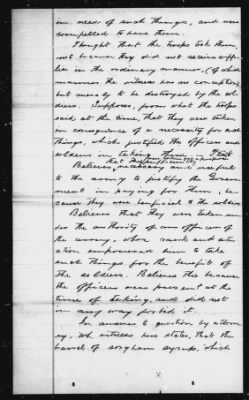 in need of such things, and were
compelled to have them.
Thought that the troops took them,
not because they did not receive supp-
lies in the ordinary manner, (of which
manner the witness has no conception)
but merely to be destroyed by the sol-
diers. Supposes, from what the troops
said at the time, that they was taken
in consequence of a necessity for such
things, which justified the officers and
soldiers in taking them.
Believes, necessary and useful
to the army to justify the Govern-
ment in paying for them, be-
cause they were beneficial to the soldiers.
Believes that they was taken un-
der the authority of an officer of
the army, whose rank and sta-
tion empowered him to take
such things for the benefit of
the soldiers. Believes this because
the officers were present at the
time of taking, and did not
in any way forbid it.
In answer to question by attorn-
ey. witness here states, that the
barrel of sorghum syrup, which